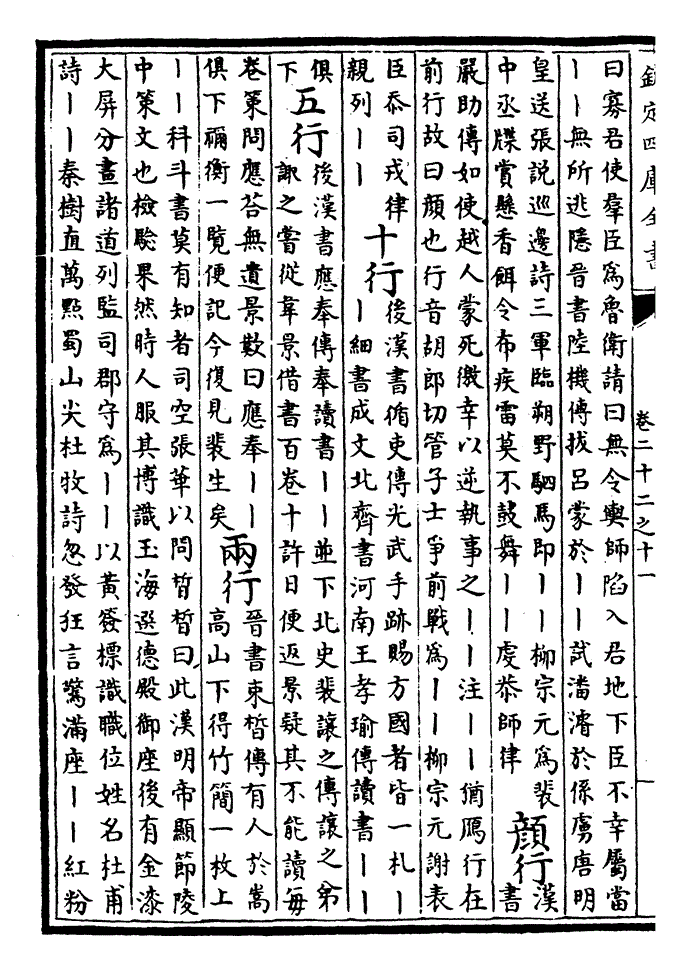 欽定四庫全書
卷二十二之十一
曰寡君使羣臣爲魯衛請曰無令輿師陷入君地下臣不幸屬當
丨丨無所逃隱晉書陸機傳拔呂蒙於丨丨試潘濬於係虜唐明
皇送張説巡邊詩三軍臨朔野駟馬即丨丨柳宗元爲裴
中丞牒賞懸香餌令布疾雷莫不鼓舞丨丨虔恭師律
顔行
漢
書
嚴助傳如使越人蒙死徼幸以逆執事之丨丨注丨丨猶鴈行在
前行故曰顔也行音胡郎切管子士爭前戰爲丨丨柳宗元謝表
臣忝司戎律
親列丨丨
十行
後漢書循吏傳光武手跡賜方國者皆一札丨
丨細書成文北齊書河南王孝瑜傳讀書丨丨
俱
下
五行
後漢書應奉傳奉讀書丨丨並下北史裴讓之傳讓之弟
諏之嘗從韋景借書百卷十許日便返景疑其不能讀每
卷策問應荅無遺景歎曰應奉丨丨
俱下禰衡一覽便記今復見裴生矣
兩行
晉書束皙傳有人於嵩
高山下得竹簡一枚上
丨丨科斗書莫有知者司空張華以問皙皙曰此漢明帝顯節陵
中策文也檢驗果然時人服其博識玉海選德殿御座後有金漆
大屏分畫諸道列監司郡守爲丨丨以黃簽標識職位姓名杜甫
詩丨丨秦樹直萬點蜀山尖杜牧詩忽發狂言驚滿座丨丨紅粉